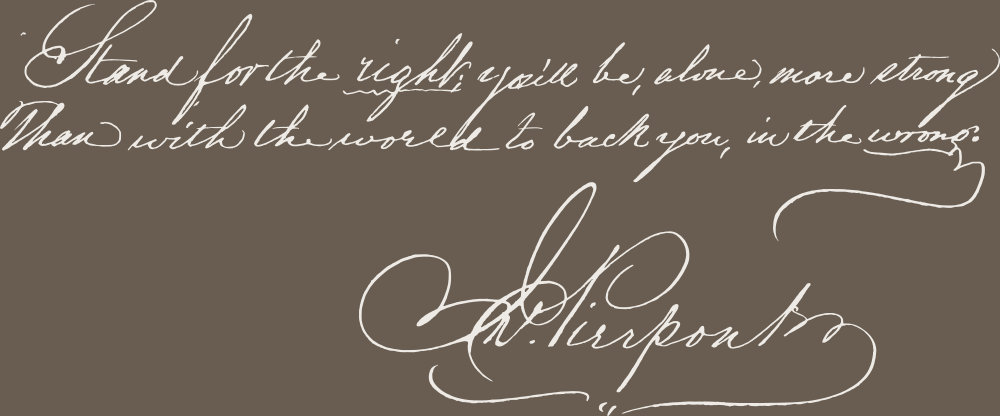 Stand for the right; you'll be, alone, more strong
Than with the world to back you, in the wrong.
Jno. Pierpont